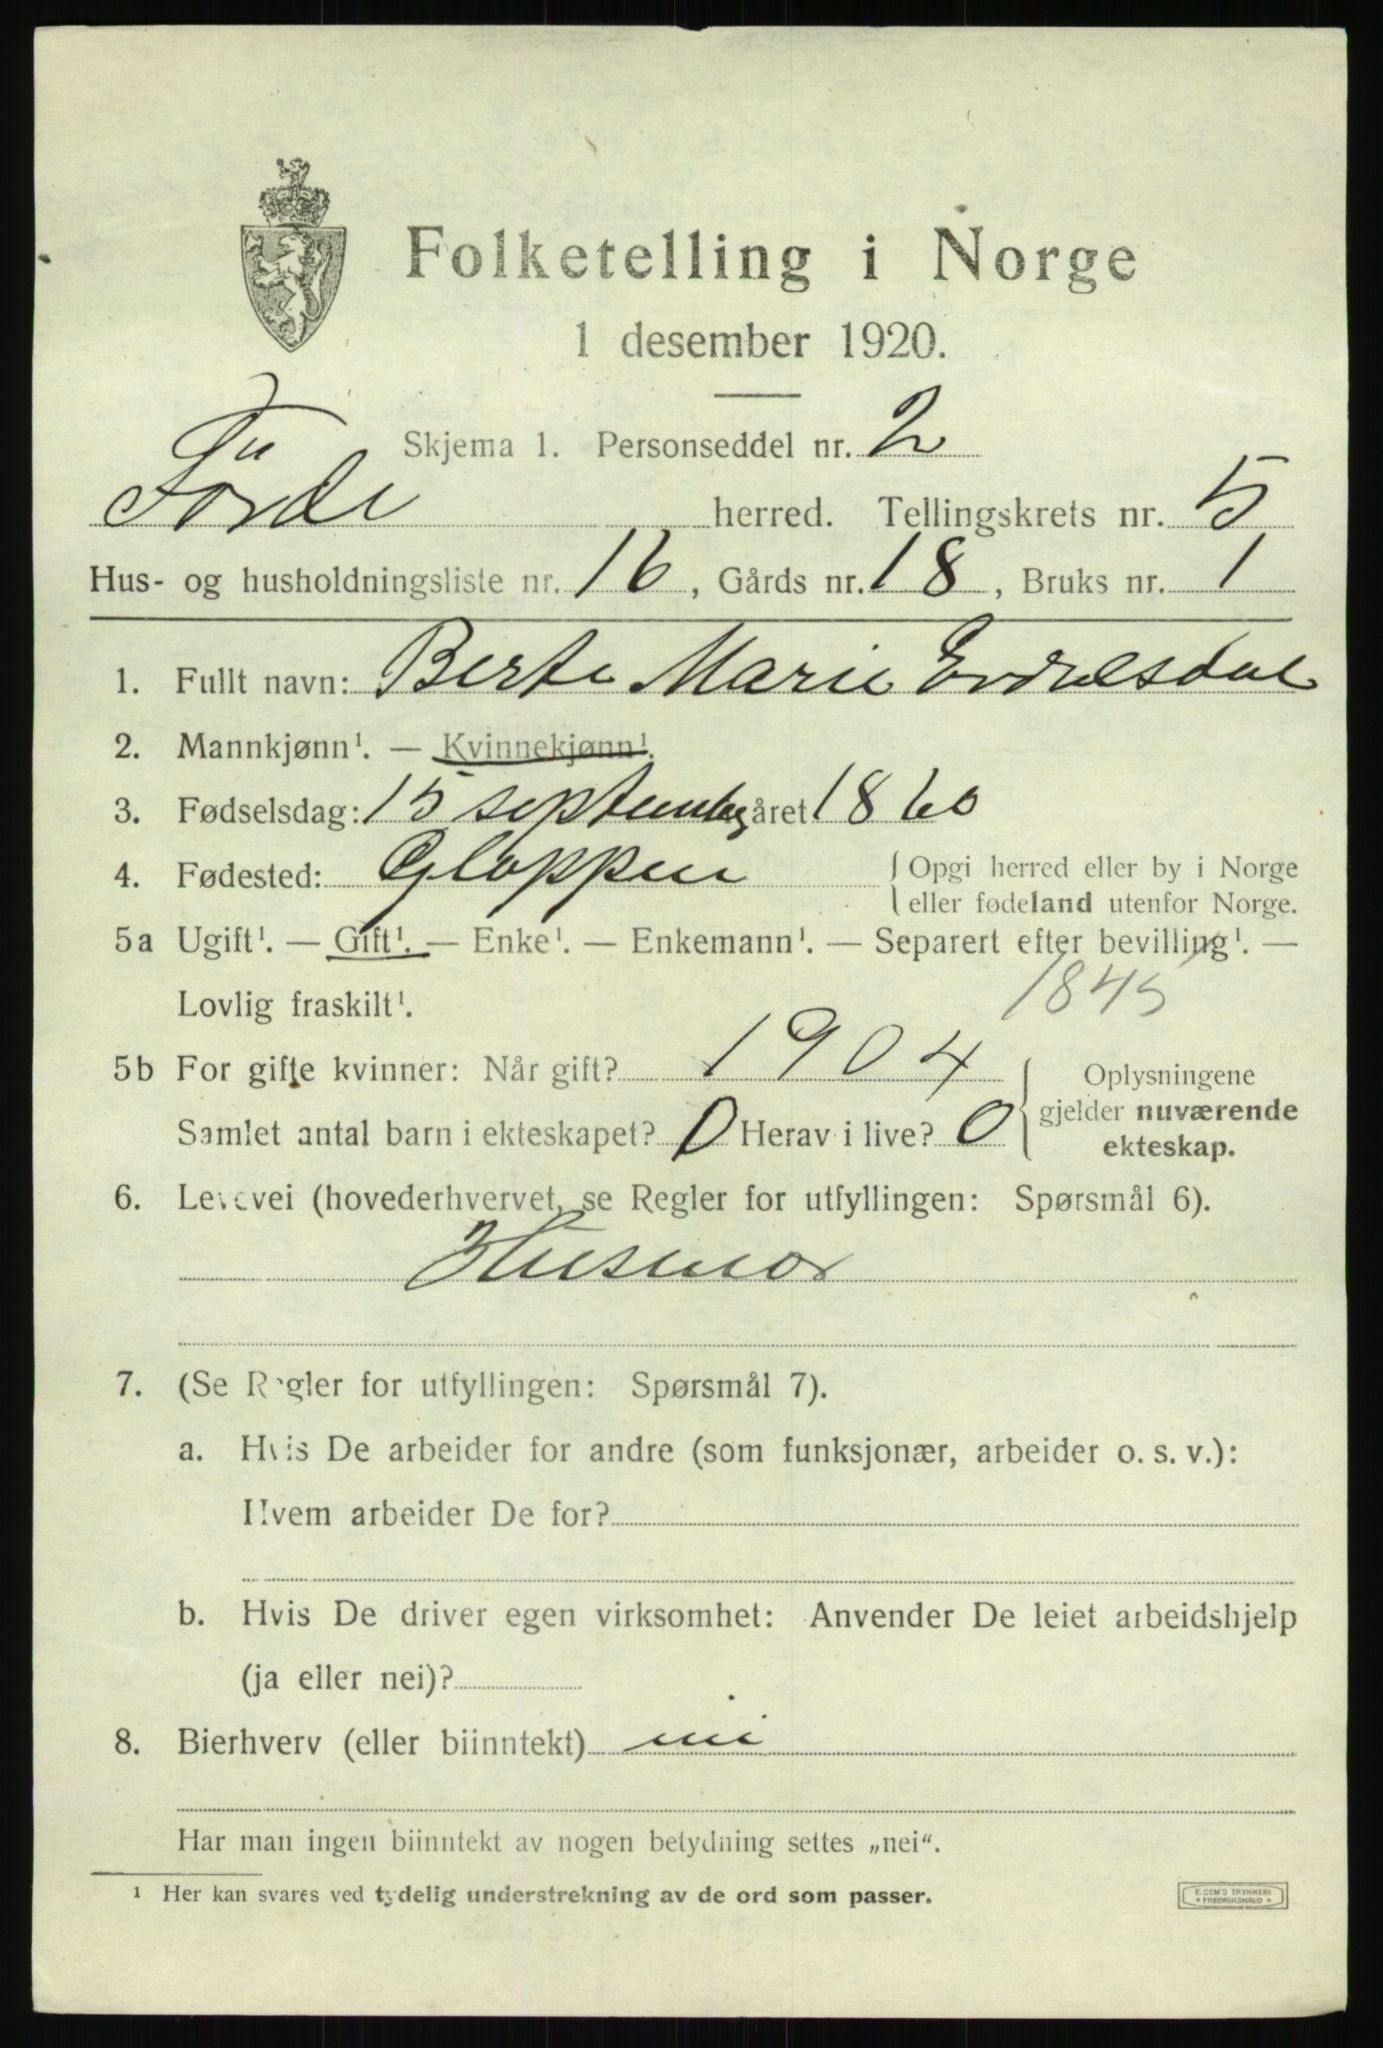 Folketelling i Norge
1 desember 1920.
Skjema 1. Personseddel nr. 2
Förde herred. Tellingskrets nr. 5
Hus- og husholdningsliste nr. 16, Gårds nr. 18, Bruks nr. 1
1. Fullt navn: Berte Marie
2. Mannkjønn¹. — Kvinnekjønn¹.
3. Fødselsdag: 15 september året 1860
4. Fødested: Gloppen { Opgi herred eller by i Norge
eller fødeland utenfor Norge.
5a Ugift¹. — Gift¹. — Enke¹. — Enkemann¹. — Separert efter bevilling¹. —
Lovlig fraskilt¹. 1845
5b For gifte kvinner: Når gift? 1904
Samlet antal barn i ekteskapet? 0 Herav i live? 0
{ Oplysningene
gjelder nuværende
ekteskap.
6. Levevei (hovederhvervet, se Regler for utfyllingen: Spørsmål 6).
Husmor
7. (Se Regler for utfyllingen: Spørsmål 7).
a. Hvis De arbeider for andre (som funksjonær, arbeider o. s. v.):
Hvem arbeider De for?
b. Hvis De driver egen virksomhet: Anvender De leiet arbeidshjelp
(ja eller nei)?
8. Bierhverv (eller biinntekt) nei
Har man ingen biinntekt av nogen betydning settes „nei“.
¹ Her kan svares ved tydelig understrekning av de ord som passer.
E. SEM'S TRYKKERI
* FREDRIKSHALD *